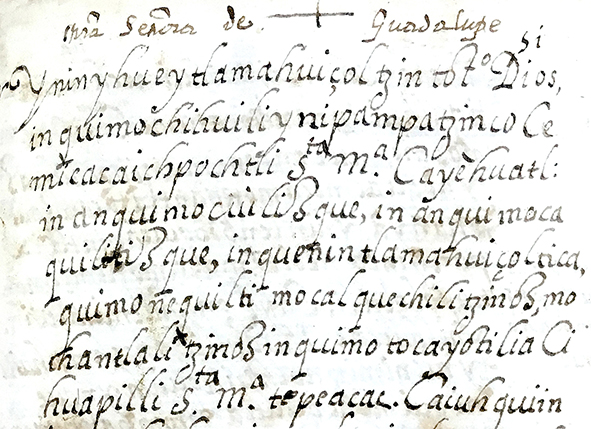 nr̃a Señora de Guadalupe
Yniny huey tlamahuiçoltzin tot.º Dios,
in quimochihuili ynipampatzinco Ce
micacaichpochtli S.ta M.a Cayehuatl:
in anquimociuilizque, in anquimoca
quilitizque, inquenin tlamahuiçoltica,
quimonequilti mocalquechilitzinoz, mo
chantlalitzinoz inquimotocayotilia Ci
huapilli S.ta M.a tepeacac. Caiuhquiin